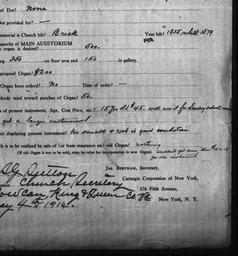 of Der? None
not provided for —
material is Church built? Brick Year built? 1855 rebuilt 1879
capacity of MAIN AUDITORIUM
organ is desired? 500
350 on floor area and 150 in gallery.
proposed Organ? $1200
Organ been ordered? No Date of order? —
already raised toward purchase of Organ? 50
of present Instrument, Age, Cost Price, etc.? 15 yrs old $45. will use it for Sunday school
get a larger instrument
displacing present instrument? too small & not in good condition
it is to be realized by sale of (or from insurance on) old Organ? Nothing
(If old Organ is not to be sold, state its value for incorporation in new Organ)
JAS BERTRAM, Secretary,
Carnegie Corporation of New York,
576 Fifth Avenue,
New York, N. Y.
Church Secretary
King & Queen Co Va
May 4th 1914.